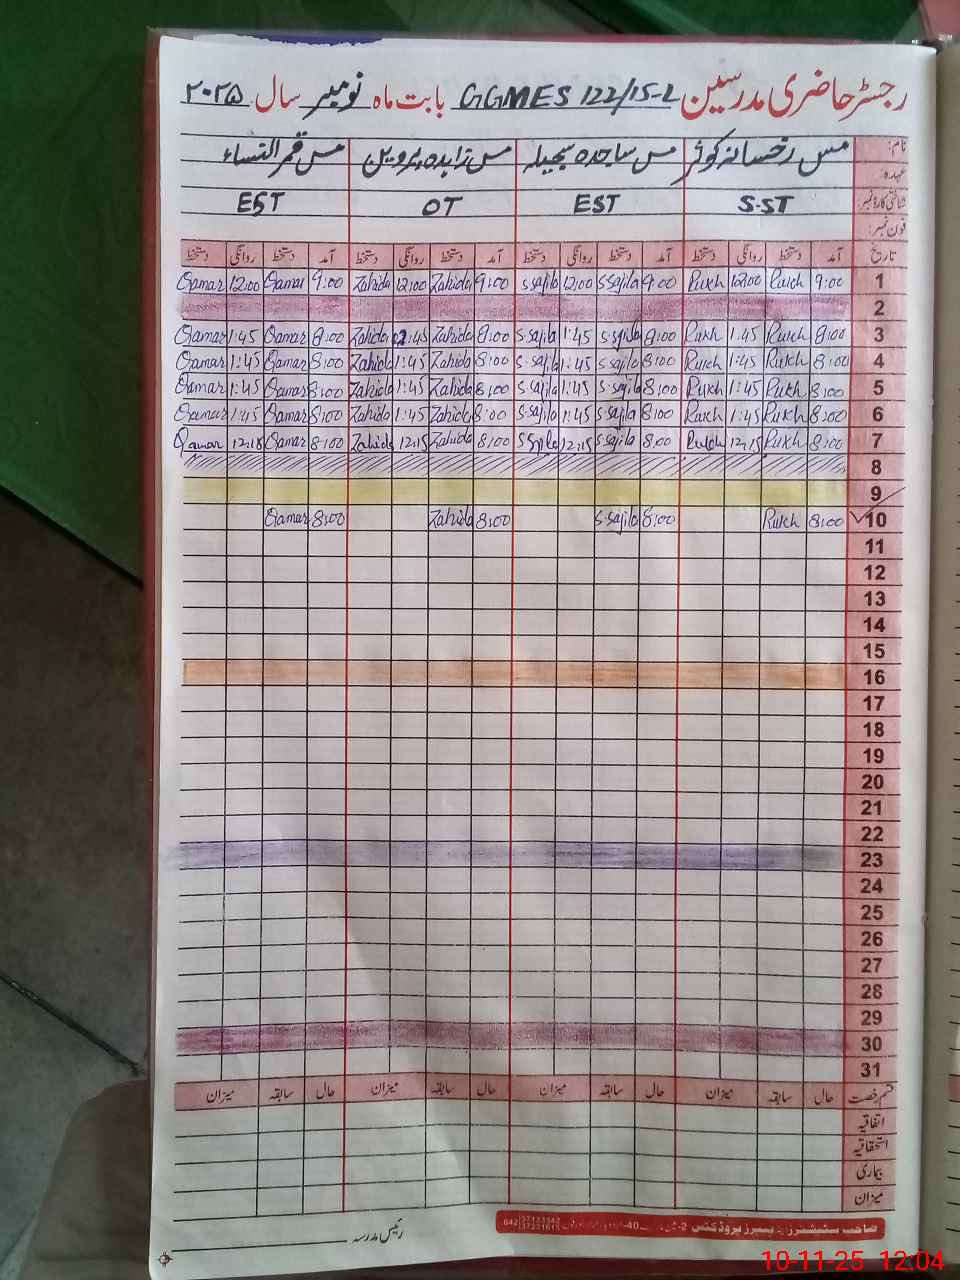 رجسٹر حاضری مدرسین GGMES 122/15-L بابت ماہ نومبر سال ۲۰۲۵
نام: مس رخسانہ کوثر مس ساجدہ سجیلہ مس زاہدہ پروین مس قمر النساء
عہدہ:
شناختی کارڈ نمبر: S.ST EST OT EST
فون نمبر:
تاریخ آمد دستخط روانگی دستخط آمد دستخط روانگی دستخط آمد دستخط روانگی دستخط آمد دستخط روانگی دستخط
Qamar 12:00 Qamar 9:00 Zahida 12:00 Zahida 9:00 S.sajila 12:00 S.sajila 9:00 Rukh 12:00 Rukh 9:00 1
2
Qamar 1:45 Qamar 8:00 Zahida 12:45 Zahida 8:00 S.sajila 1:45 S.sajila 8:00 Rukh 1:45 Rukh 8:00 3
Qamar 1:45 Qamar 8:00 Zahida 1:45 Zahida 8:00 S.sajila 1:45 S.sajila 8:00 Rukh 1:45 Rukh 8:00 4
Qamar 1:45 Qamar 8:00 Zahida 1:45 Zahida 8:00 S.sajila 1:45 S.sajila 8:00 Rukh 1:45 Rukh 8:00 5
Qamar 1:45 Qamar 8:00 Zahida 1:45 Zahida 8:00 S.sajila 1:45 S.sajila 8:00 Rukh 1:45 Rukh 8:00 6
Qamar Qamar 8:00 Zahida 12:15 Zahida 8:00 S.Sajila 12:15 S.sajila 8:00 Rukh 12:15 Rukh 8:00 7
8
9
Qamar 8:00 Zahida 8:00 S.sajila 8:00 Rukh 8:00 10
11
12
13
14
15
16
17
18
19
20
21
22
23
24
25
26
27
28
29
30
31
قسم رخصت حال سابقہ میزان حال سابقہ میزان حال سابقہ میزان حال سابقہ میزان
اتفاقیہ
استحقاقیہ
بیماری
میزان
رئیس مدرسہ
صاحب سٹیشنرز اینڈ پیپرز پروڈکٹس
10-11-25 12:04